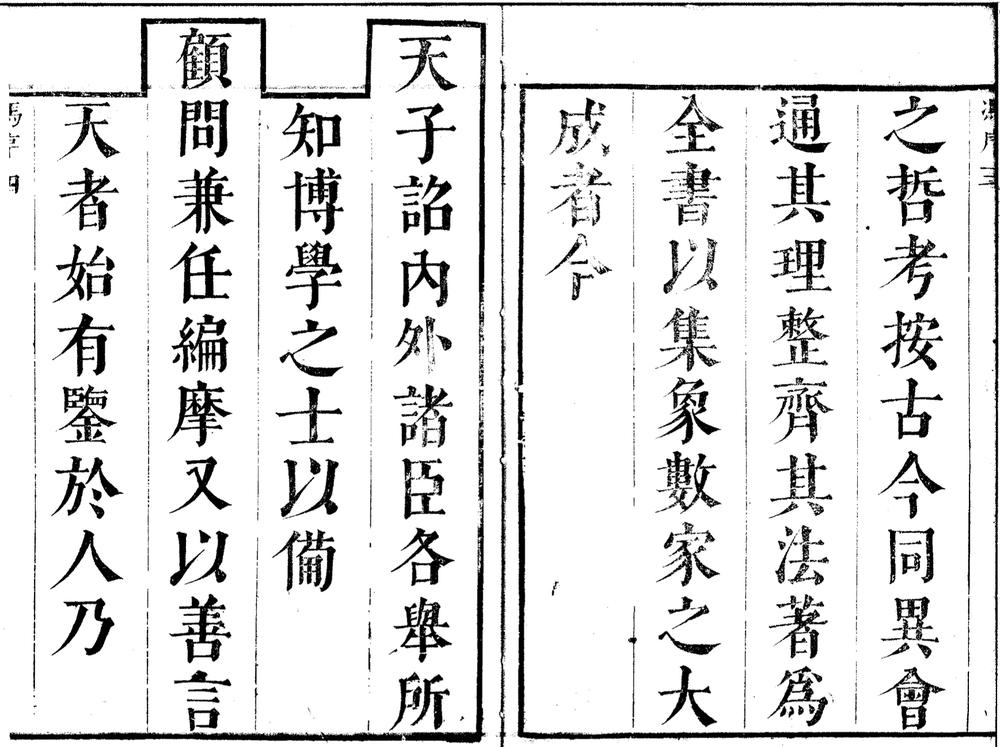 之哲考按古今同異會
通其理整齊其法著爲
全書以集象數家之大
成者今
天子詔內外諸臣各舉所
知博學之士以備
顧問兼任編摩又以善言
天者始有鑒於人乃
馮序四